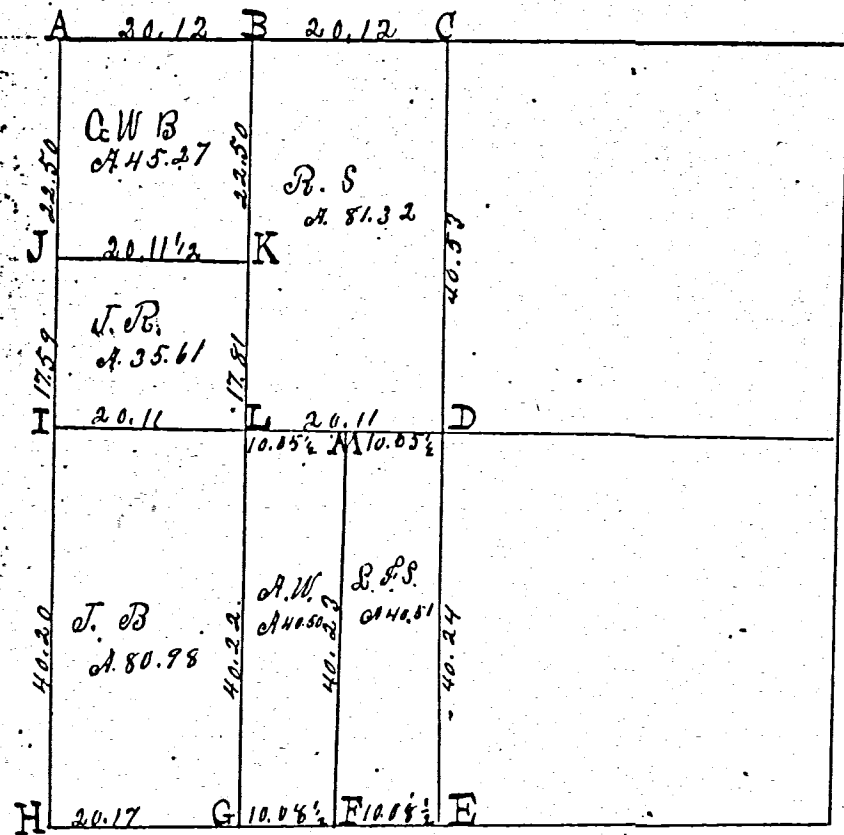 A 20.12 B 20.12 C
C. W B
A. 45.27
22.50
22.50
R. S
A. 81.32
40.53
J 20.11 1/2 K
J. R.
A. 35.61
17.59
17.81
I 20.11 L 20.11 D
10.05 1/2 M 10.05 1/2
J. B
A. 80.98
40.20
40.22
A. W.
A 40.50
40.23
L. F. S.
A 40.51
40.24
H 20.17 G 10.08 1/2 F 10.08 1/2 E